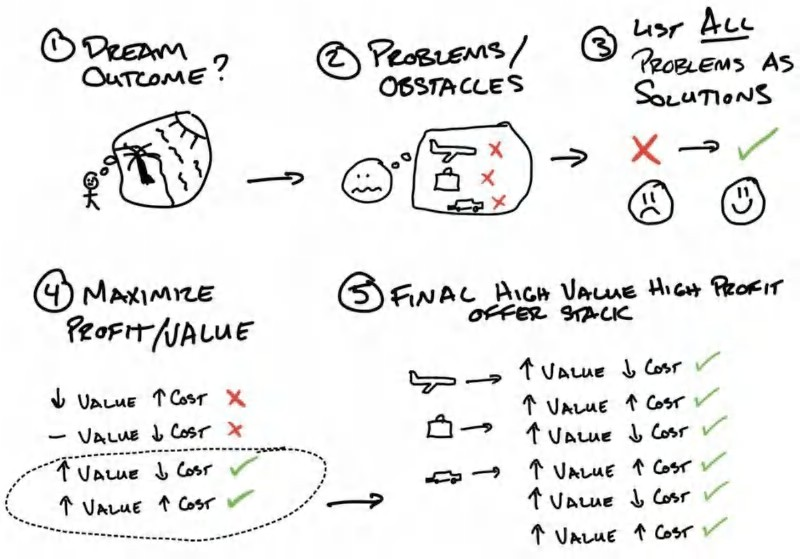 ① DREAM
OUTCOME?
② PROBLEMS/
OBSTACLES
③ LIST ALL
PROBLEMS AS
SOLUTIONS
④ MAXIMIZE
PROFIT/VALUE
↓ VALUE ↑ COST ✗
– VALUE ↓ COST ✗
↑ VALUE ↓ COST ✓
↑ VALUE ↑ COST ✓
⑤ FINAL HIGH VALUE HIGH PROFIT
OFFER STACK
↑ VALUE ↓ COST ✓
↑ VALUE ↑ COST ✓
↑ VALUE ↓ COST ✓
↑ VALUE ↑ COST ✓
↑ VALUE ↓ COST ✓
↑ VALUE ↑ COST ✓